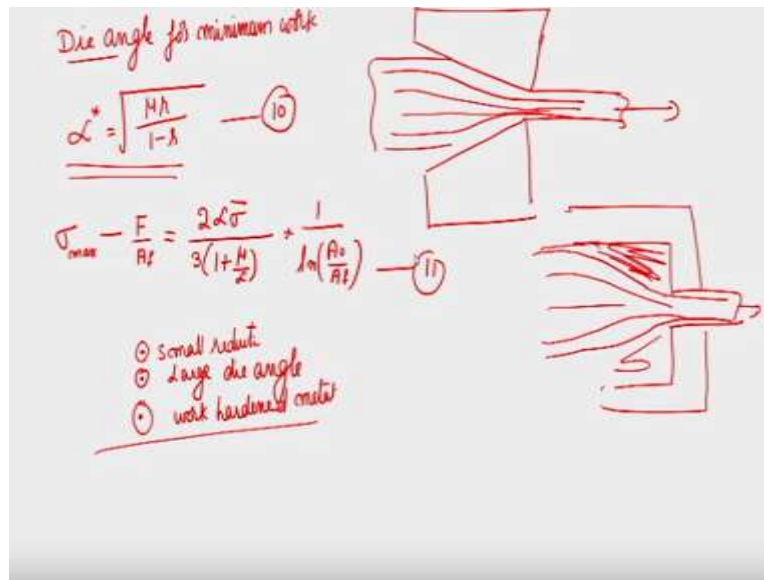 Die angle for minimum work
α* = √(μr / 1-r) — ⑩
σmax - F/Af = 2ασ̄ / 3(1+μ/α) + 1 / ln(A0/Af) — ⑪
⊙ small reducti
⊙ Large die angle
⊙ work hardened metal